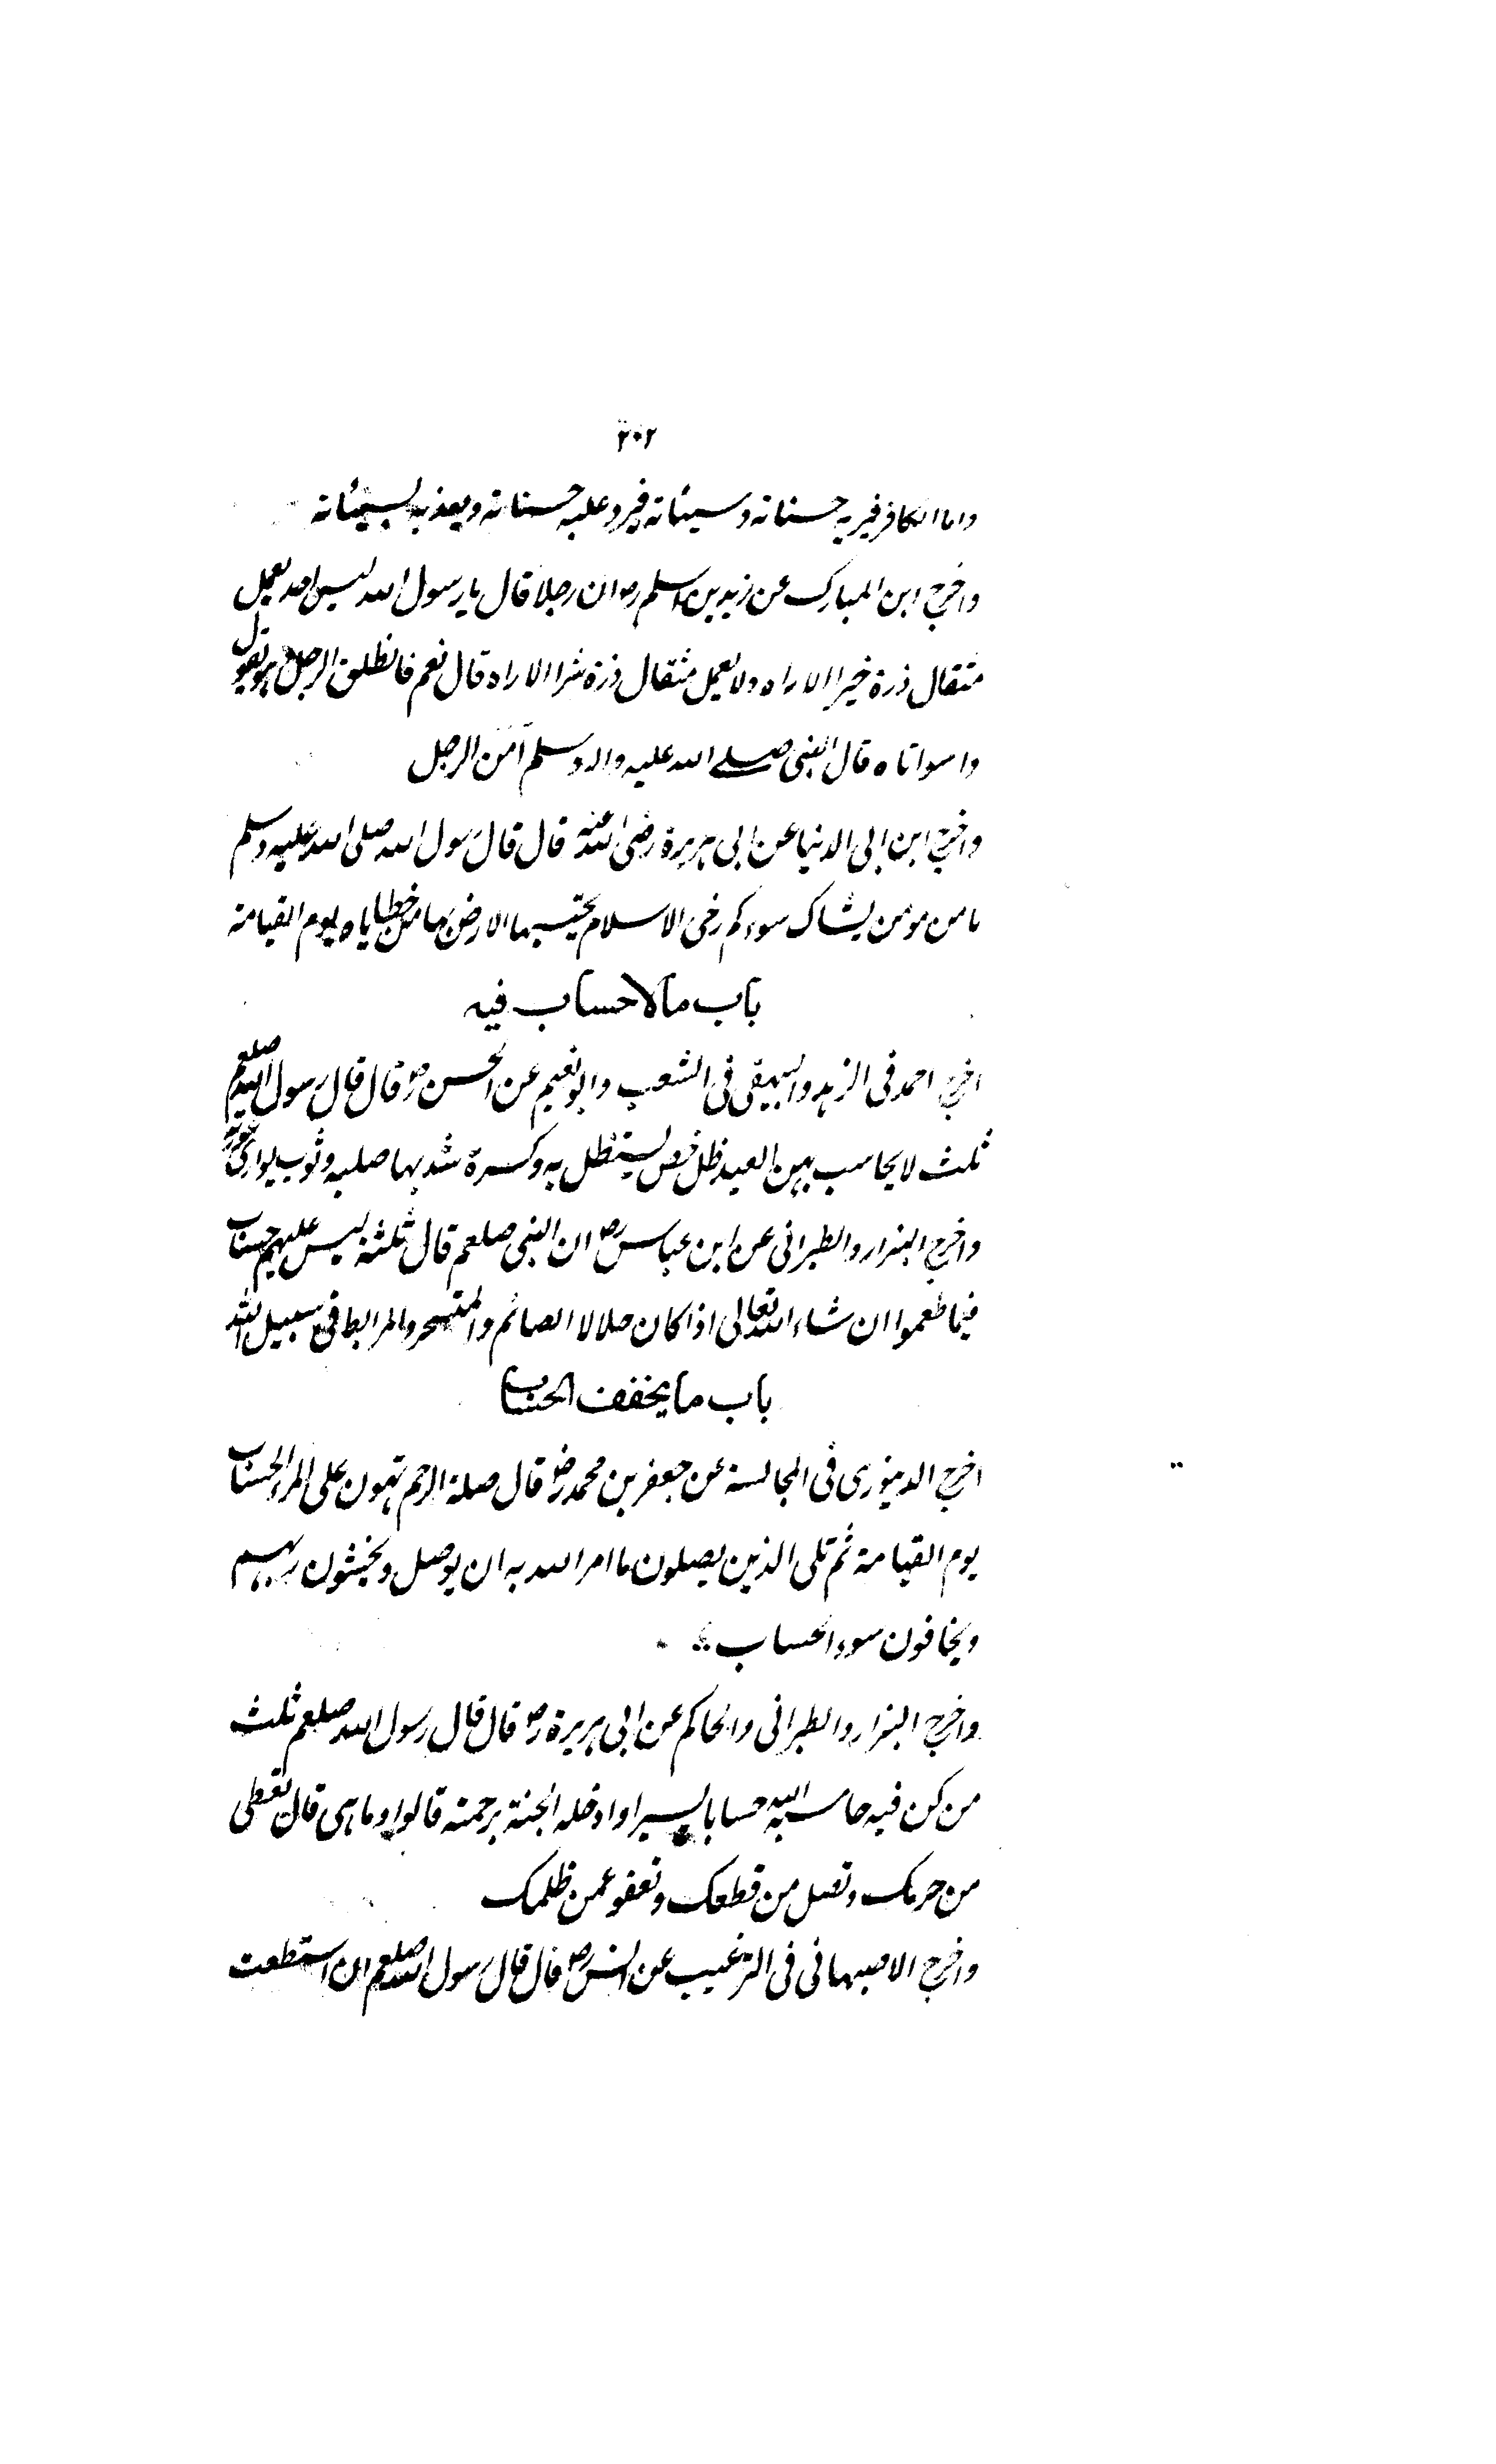 ٢٠٢
واما الكافر فيريه حسناته وسيئاته فيرد عليه حسناته ويعذبه بسيئاته
واخرج ابن المبارك عن زيد بن اسلم رض ان رجلا قال يا رسول الله ليس احد يعمل
مثقال ذرة خيرا الا راه ولا يعمل مثقال ذرة شرا الا راه قال نعم فانطلق الرجل وهو يقول
واسواتاه قال النبى صلے الله عليه واله وسلم آمن الرجل
واخرج ابن ابى الدنيا عن ابى هريرة رضى الله عنه قال قال رسول الله صلى الله عليه وسلم
ما من مومن يشاك فى الاسلام يحتسبها الا من خطاياه يوم القيامة
باب ما لا حساب فيه
اخرج احمد فى الزهد والبيهقى فى الشعب وابو نعيم عن الحسن رض قال قال رسول الله صلعم
ثلث لا يحاسب بهن العبد ظل خص يستظل به وكسرة شد بها صلبه وثوب يوارى عورته
واخرج البزار والطبرانى عن ابن عباس رض ان النبى صلعم قال ثلثة ليس عليهم حساب
فيما طعموا ان شاء الله تعالى اذا كان حلالا الصائم والمتسحر والمرابط فى سبيل الله
باب ما يخفف الحساب
اخرج الدينورى فى المجالسة عن جعفر بن محمد رض قال صلة الرحم تهون على المرء الحساب
يوم القيامة ثم تلى الذين يصلون ما امر الله به ان يوصل ويخشون ربهم
ويخافون سوء الحساب
واخرج البزار والطبرانى والحاكم عن ابى هريرة رض قال قال رسول الله صلعم ثلث
من كن فيه حاسبه الله حسابا يسيرا وادخله الجنة برحمته قالوا وما هى قال تعطى
من حرمك وتصل من قطعك وتعفو عمن ظلمك
واخرج الاصبهانى فى الترغيب عن انس رض قال قال رسول الله صلعم ان استطعت